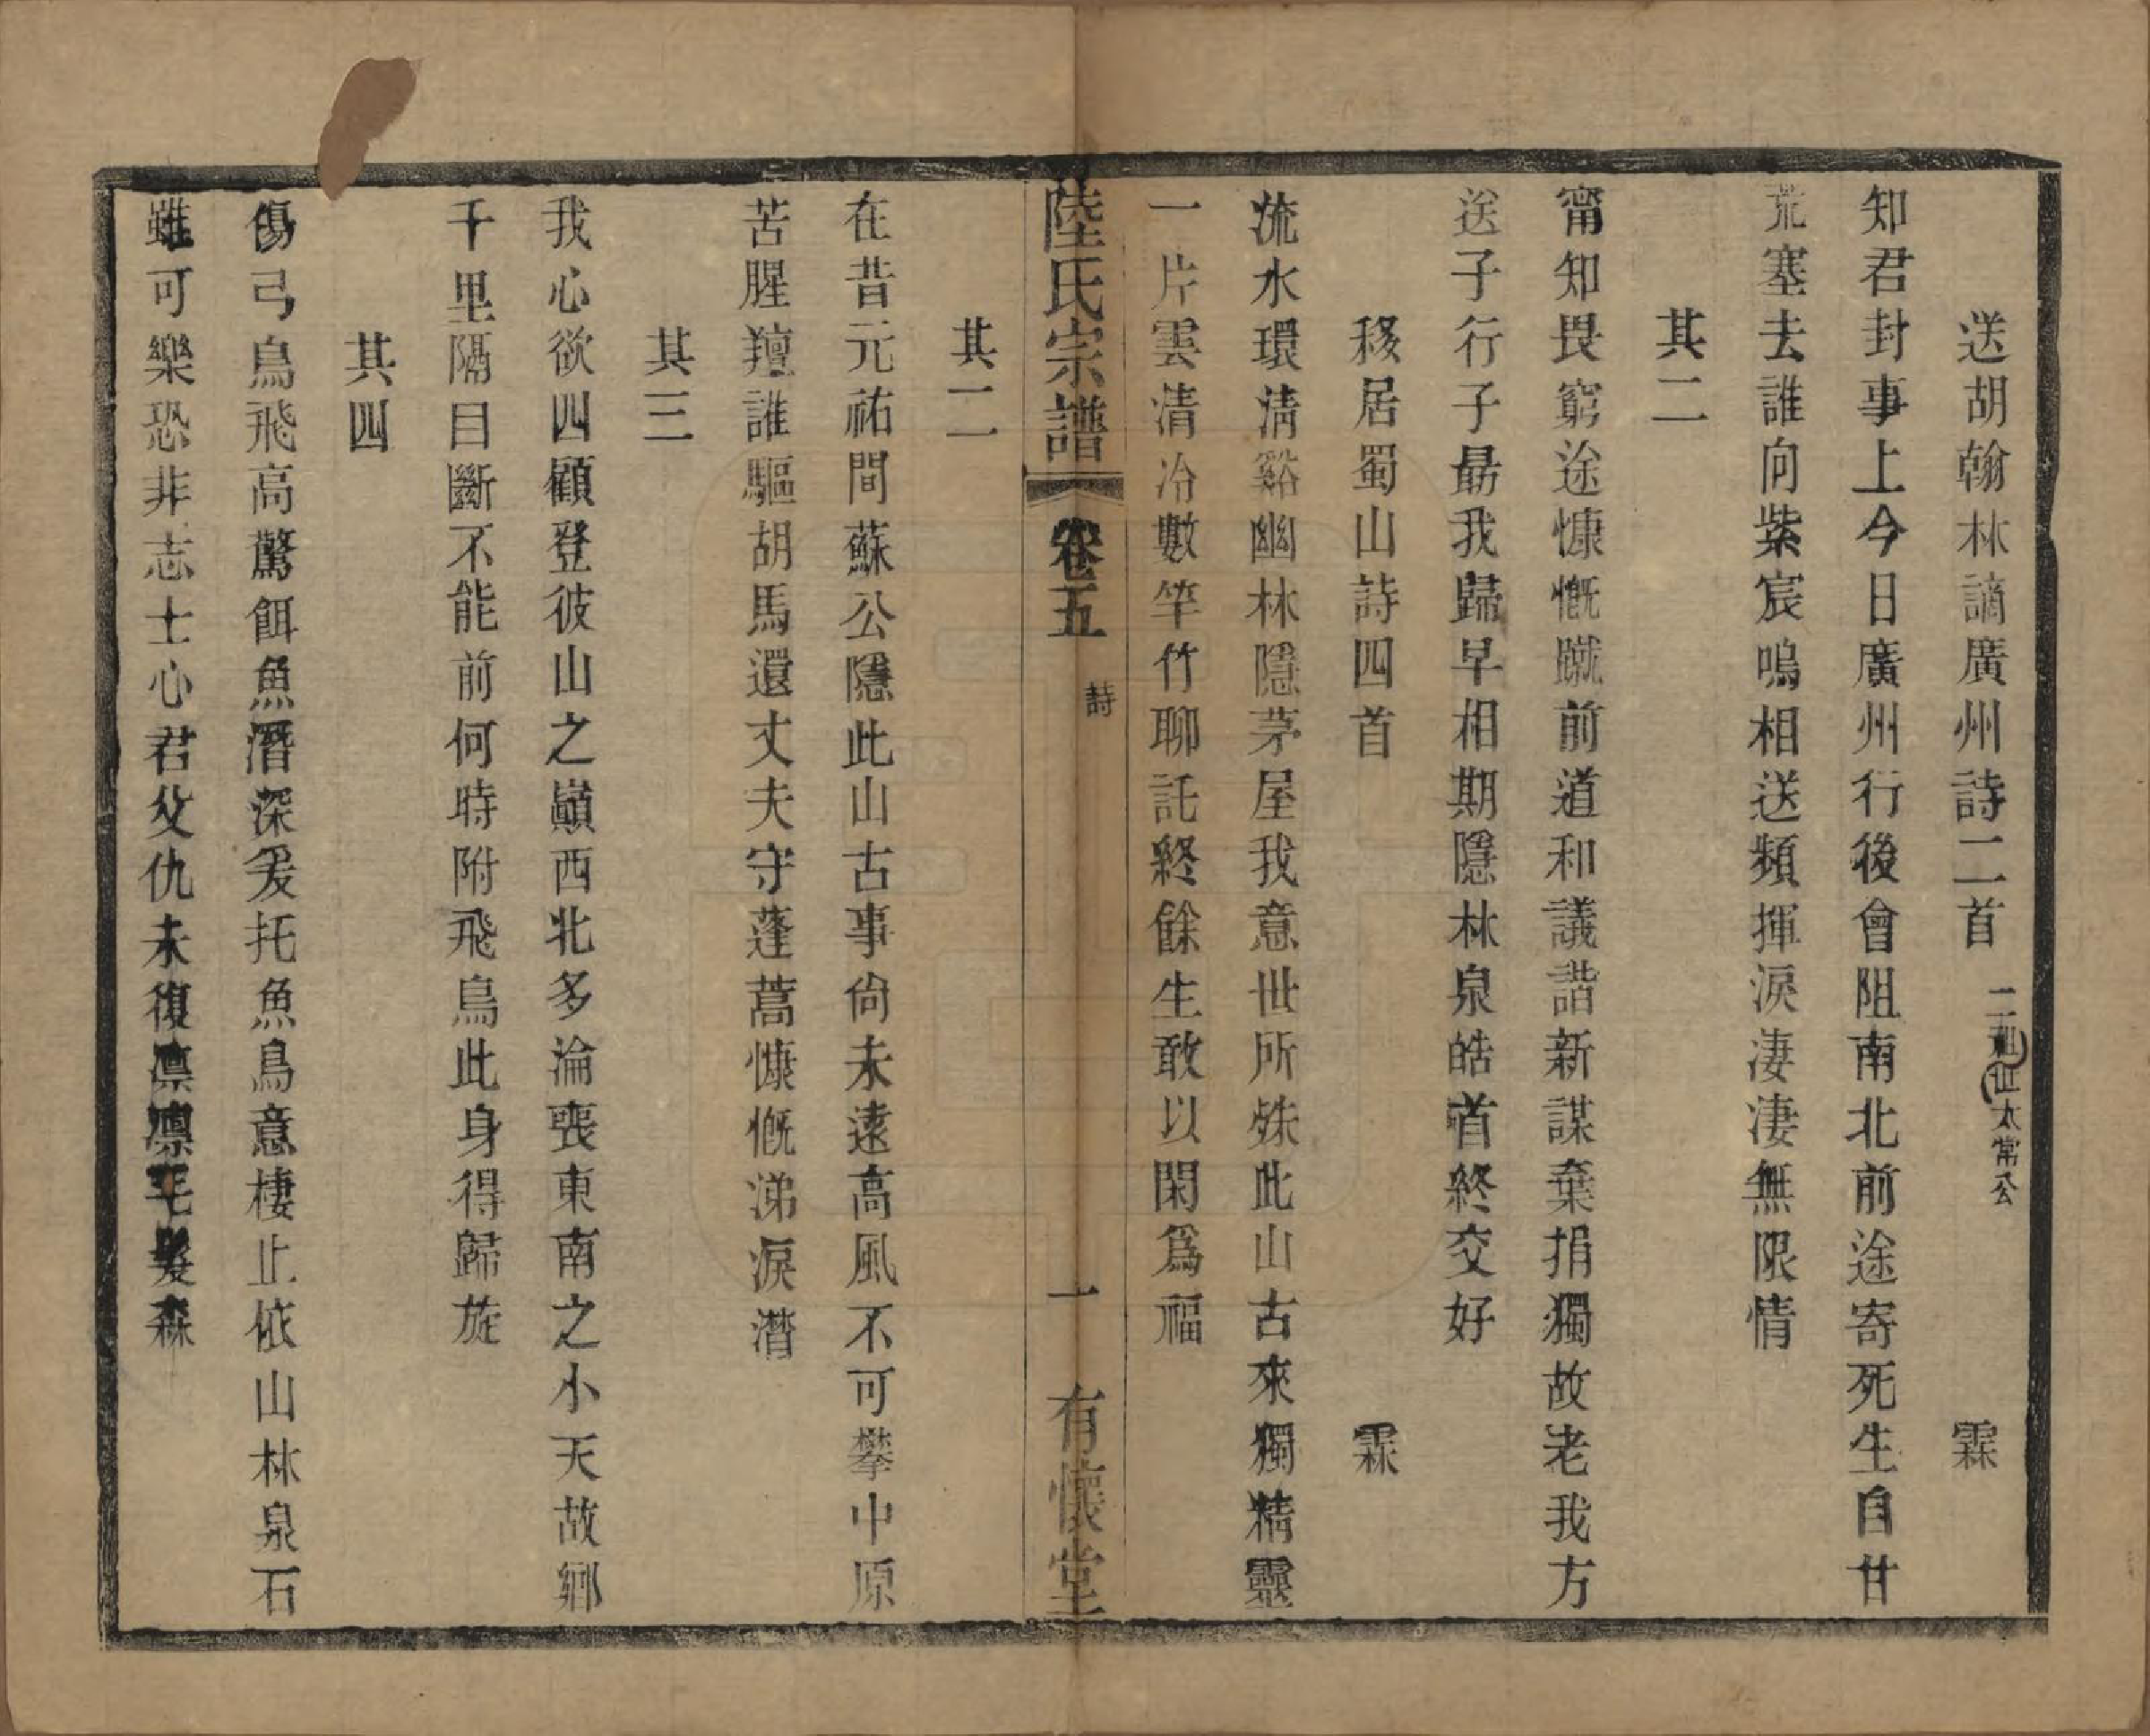 送胡翰林謫廣州詩二首 二世太常公 霖
知君封事上今日廣州行後會阻南北前途寄死生自甘
荒塞去誰向紫宸鳴相送頻揮淚淒淒無限情
其二
甯知畏窮途慷慨蹴前道和議諧新謀棄捐獨故老我方
送子行子最我歸早相期隱林泉皓首終交好
移居蜀山詩四首 霖
流水環清谿幽林隱茅屋我意世所殊此山古來獨精靈
一片雲清泠數竿竹聊託終餘生敢以閑爲福
陸氏宗譜 卷五 詩 一 有懷堂
其二
在昔元祐間蘇公隱此山古事尙未遠高風不可攀中原
苦腥羶誰驅胡馬還丈夫守蓬蒿慷慨涕淚潸
其三
我心欲四顧登彼山之巔西北多淪喪東南之小天故鄉
千里隔目斷不能前何時附飛鳥此身得歸旋
其四
傷弓鳥飛高驚餌魚潛深爰托魚鳥意棲止依山林泉石
雖可樂恐非志士心君父仇未復凛凛毛髮森